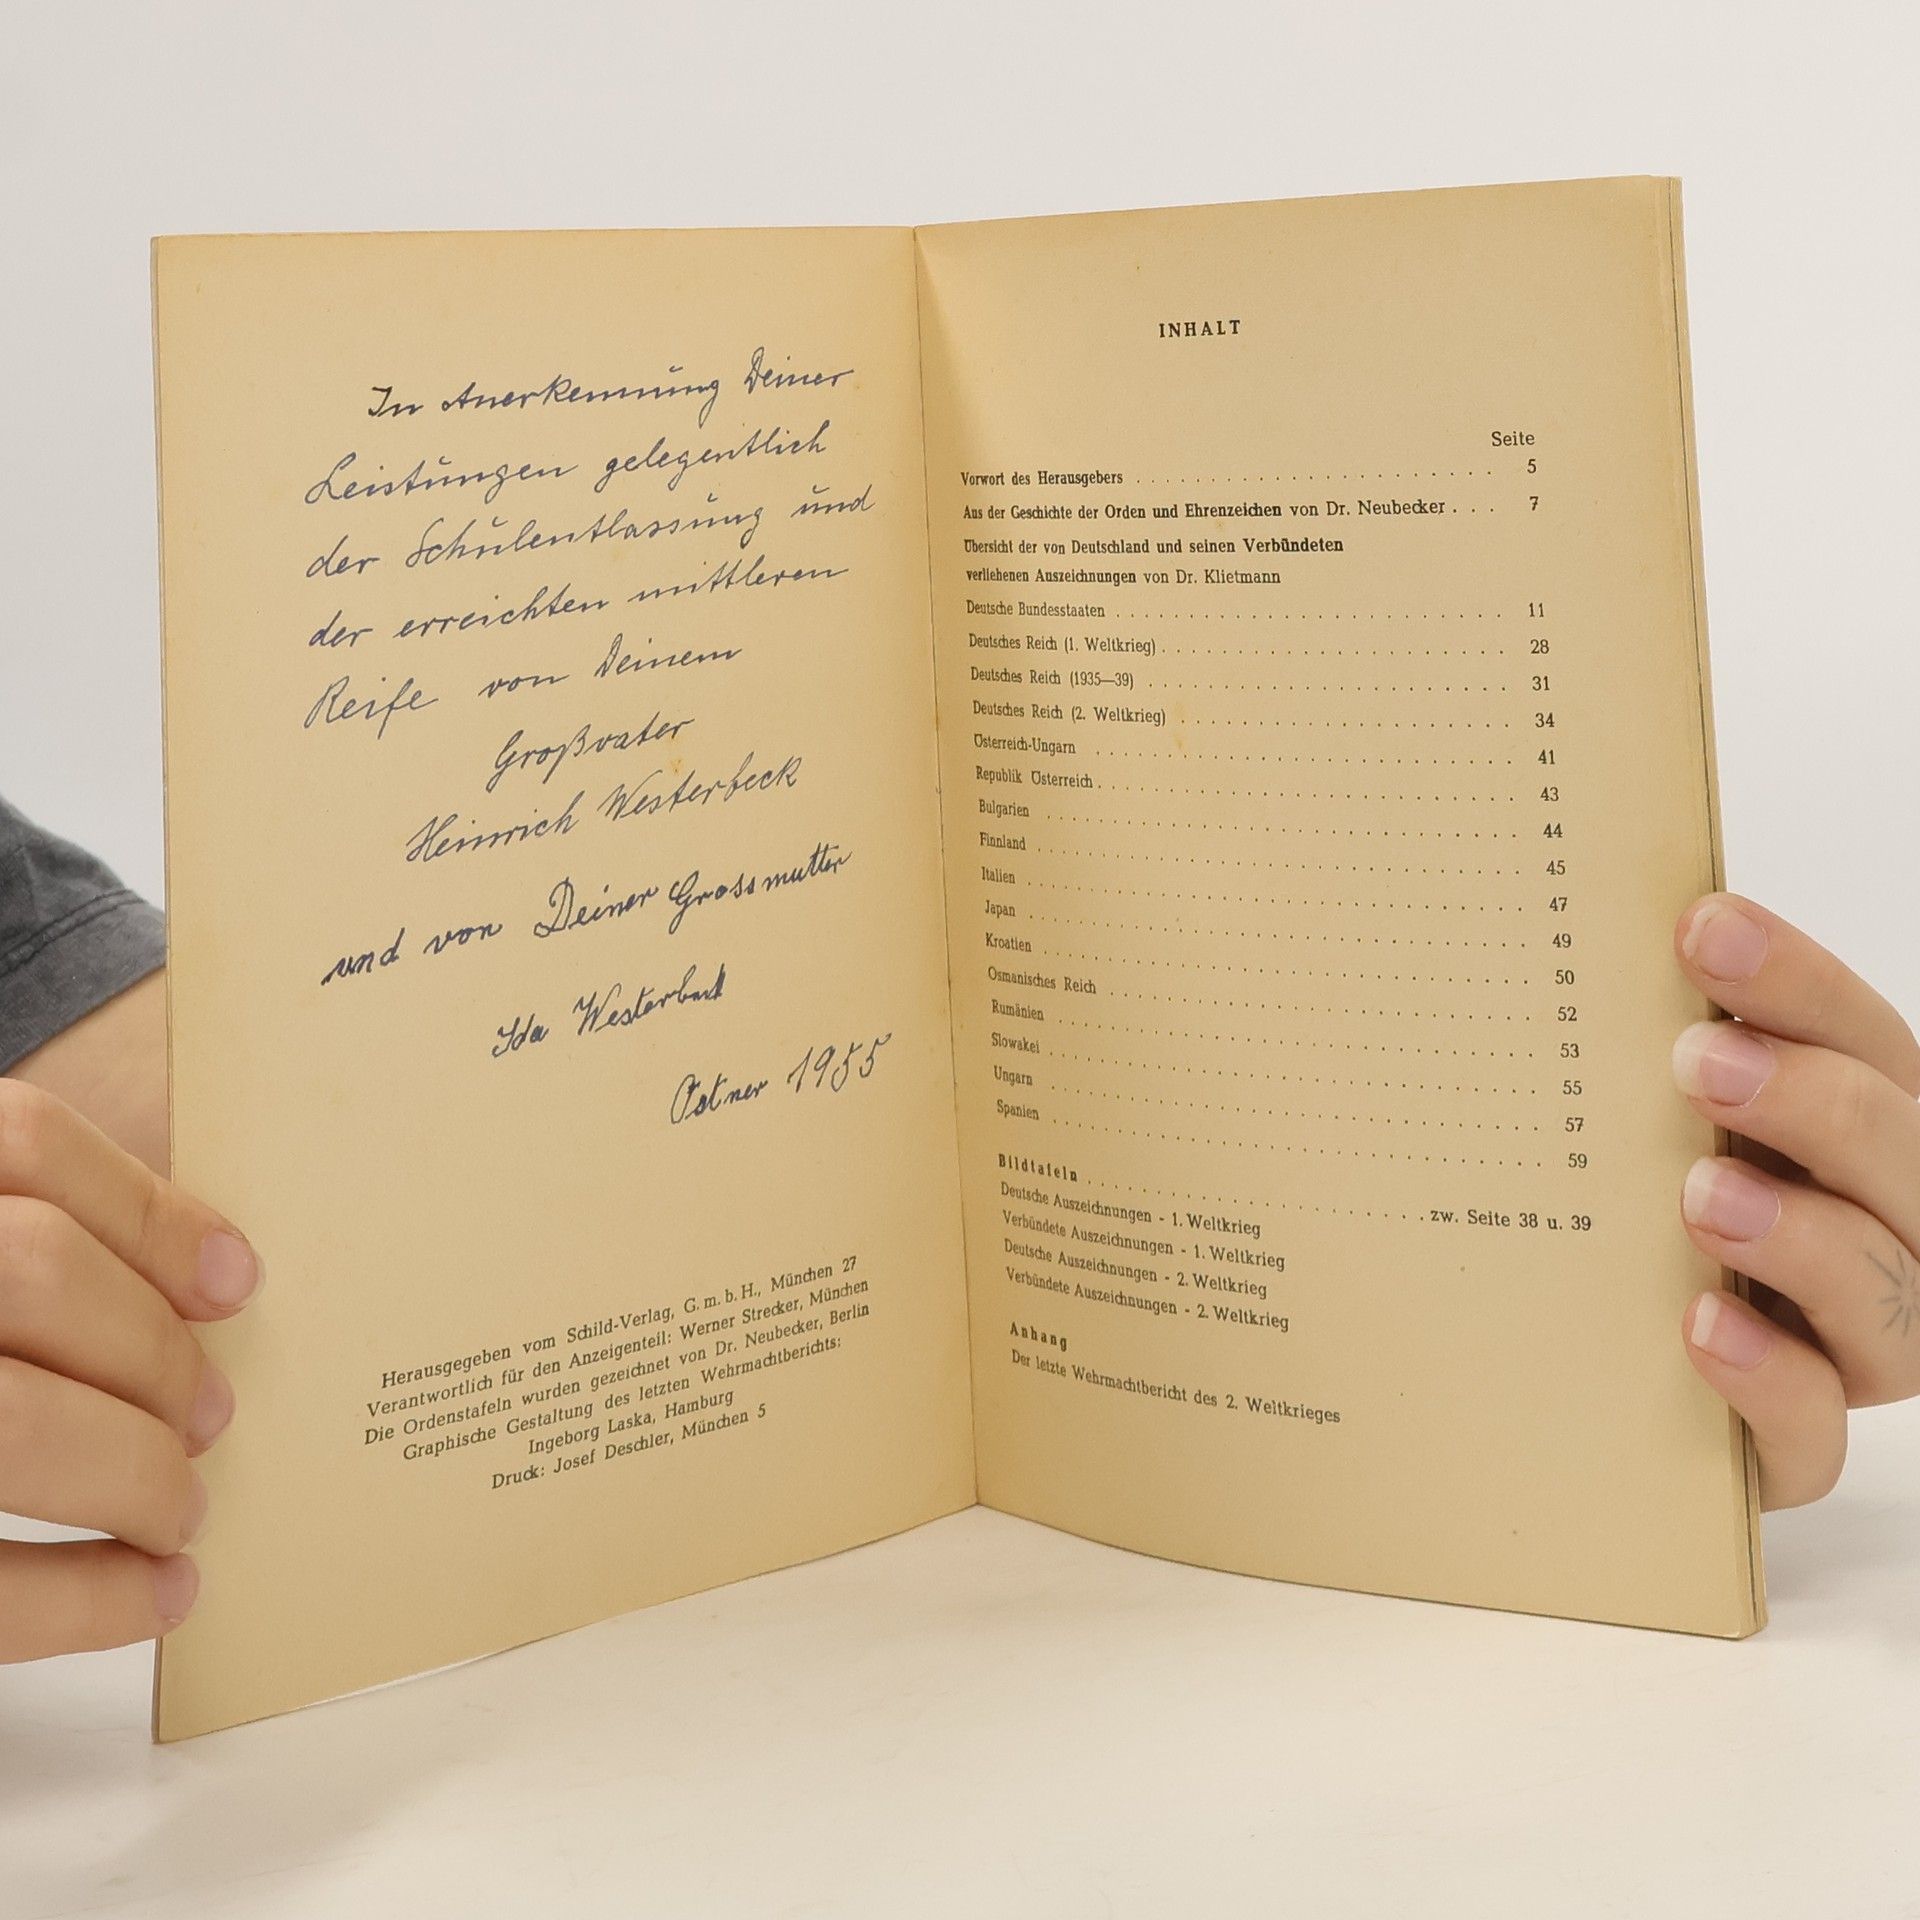 In Anerkennung Deiner
Leistungen gelegentlich
der Schulentlassung und
der erreichten mittleren
Reife von Deinem
Großvater
Heinrich Westerbeck
und von Deiner Grossmutter
Ida Westerbeck
1955
Herausgegeben vom Schild-Verlag, G. m. b. H., München 27
Verantwortlich für den Anzeigenteil: Werner Strecker, München
Die Ordenstafeln wurden gezeichnet von Dr. Neubecker, Berlin
Graphische Gestaltung des letzten Wehrmachtberichts:
Ingeborg Laska, Hamburg
Druck: Josef Deschler, München 5
INHALT
Seite
Vorwort des Herausgebers . . . . . . . . . . . . . . . . . . . . 5
Aus der Geschichte der Orden und Ehrenzeichen von Dr. Neubecker . . . 7
Übersicht der von Deutschland und seinen Verbündeten
verliehenen Auszeichnungen von Dr. Klietmann
Deutsche Bundesstaaten . . . . . . . . . . . . . . . . . . . . 11
Deutsches Reich (1. Weltkrieg) . . . . . . . . . . . . . . . . . . . . 28
Deutsches Reich (1935—39) . . . . . . . . . . . . . . . . . . . . 31
Deutsches Reich (2. Weltkrieg) . . . . . . . . . . . . . . . . . . . . 34
Österreich-Ungarn . . . . . . . . . . . . . . . . . . . . 41
Republik Österreich . . . . . . . . . . . . . . . . . . . . 43
Bulgarien . . . . . . . . . . . . . . . . . . . . 44
Finnland . . . . . . . . . . . . . . . . . . . . 45
Italien . . . . . . . . . . . . . . . . . . . . 47
Japan . . . . . . . . . . . . . . . . . . . . 49
Kroatien . . . . . . . . . . . . . . . . . . . . 50
Osmanisches Reich . . . . . . . . . . . . . . . . . . . . 52
Rumänien . . . . . . . . . . . . . . . . . . . . 53
Slowakei . . . . . . . . . . . . . . . . . . . . 55
Ungarn . . . . . . . . . . . . . . . . . . . . 57
Spanien . . . . . . . . . . . . . . . . . . . . 59
Bildtafeln . . . . . . . . . . . . . . . . . . . . zw. Seite 38 u. 39
Deutsche Auszeichnungen - 1. Weltkrieg
Verbündete Auszeichnungen - 1. Weltkrieg
Deutsche Auszeichnungen - 2. Weltkrieg
Verbündete Auszeichnungen - 2. Weltkrieg
Anhang
Der letzte Wehrmachtbericht des 2. Weltkrieges